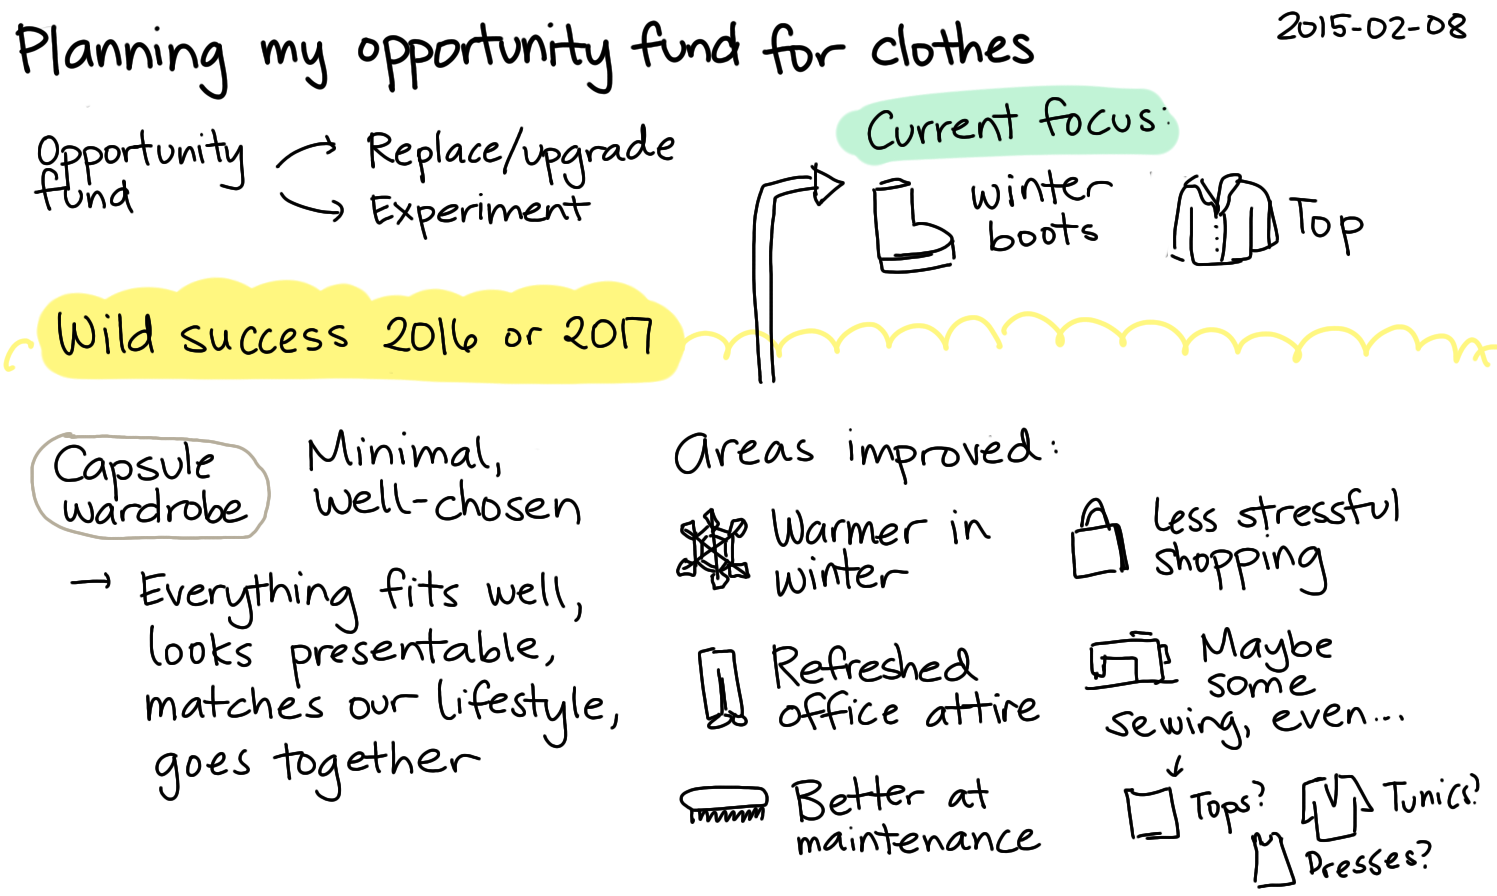 Planning my opportunity fund for clothes
2015-02-08
Opportunity
fund
Replace/upgrade
Experiment
Current focus:
winter
boots
Top
Wild success 2016 or 2017
Capsule
wardrobe
Minimal,
well-chosen
→ Everything fits well,
looks presentable,
matches our lifestyle,
goes together
Areas improved:
Warmer in
winter
Less stressful
shopping
Refreshed
office attire
Maybe
some
sewing, even...
Better at
maintenance
Tops?
Tunics?
Dresses?